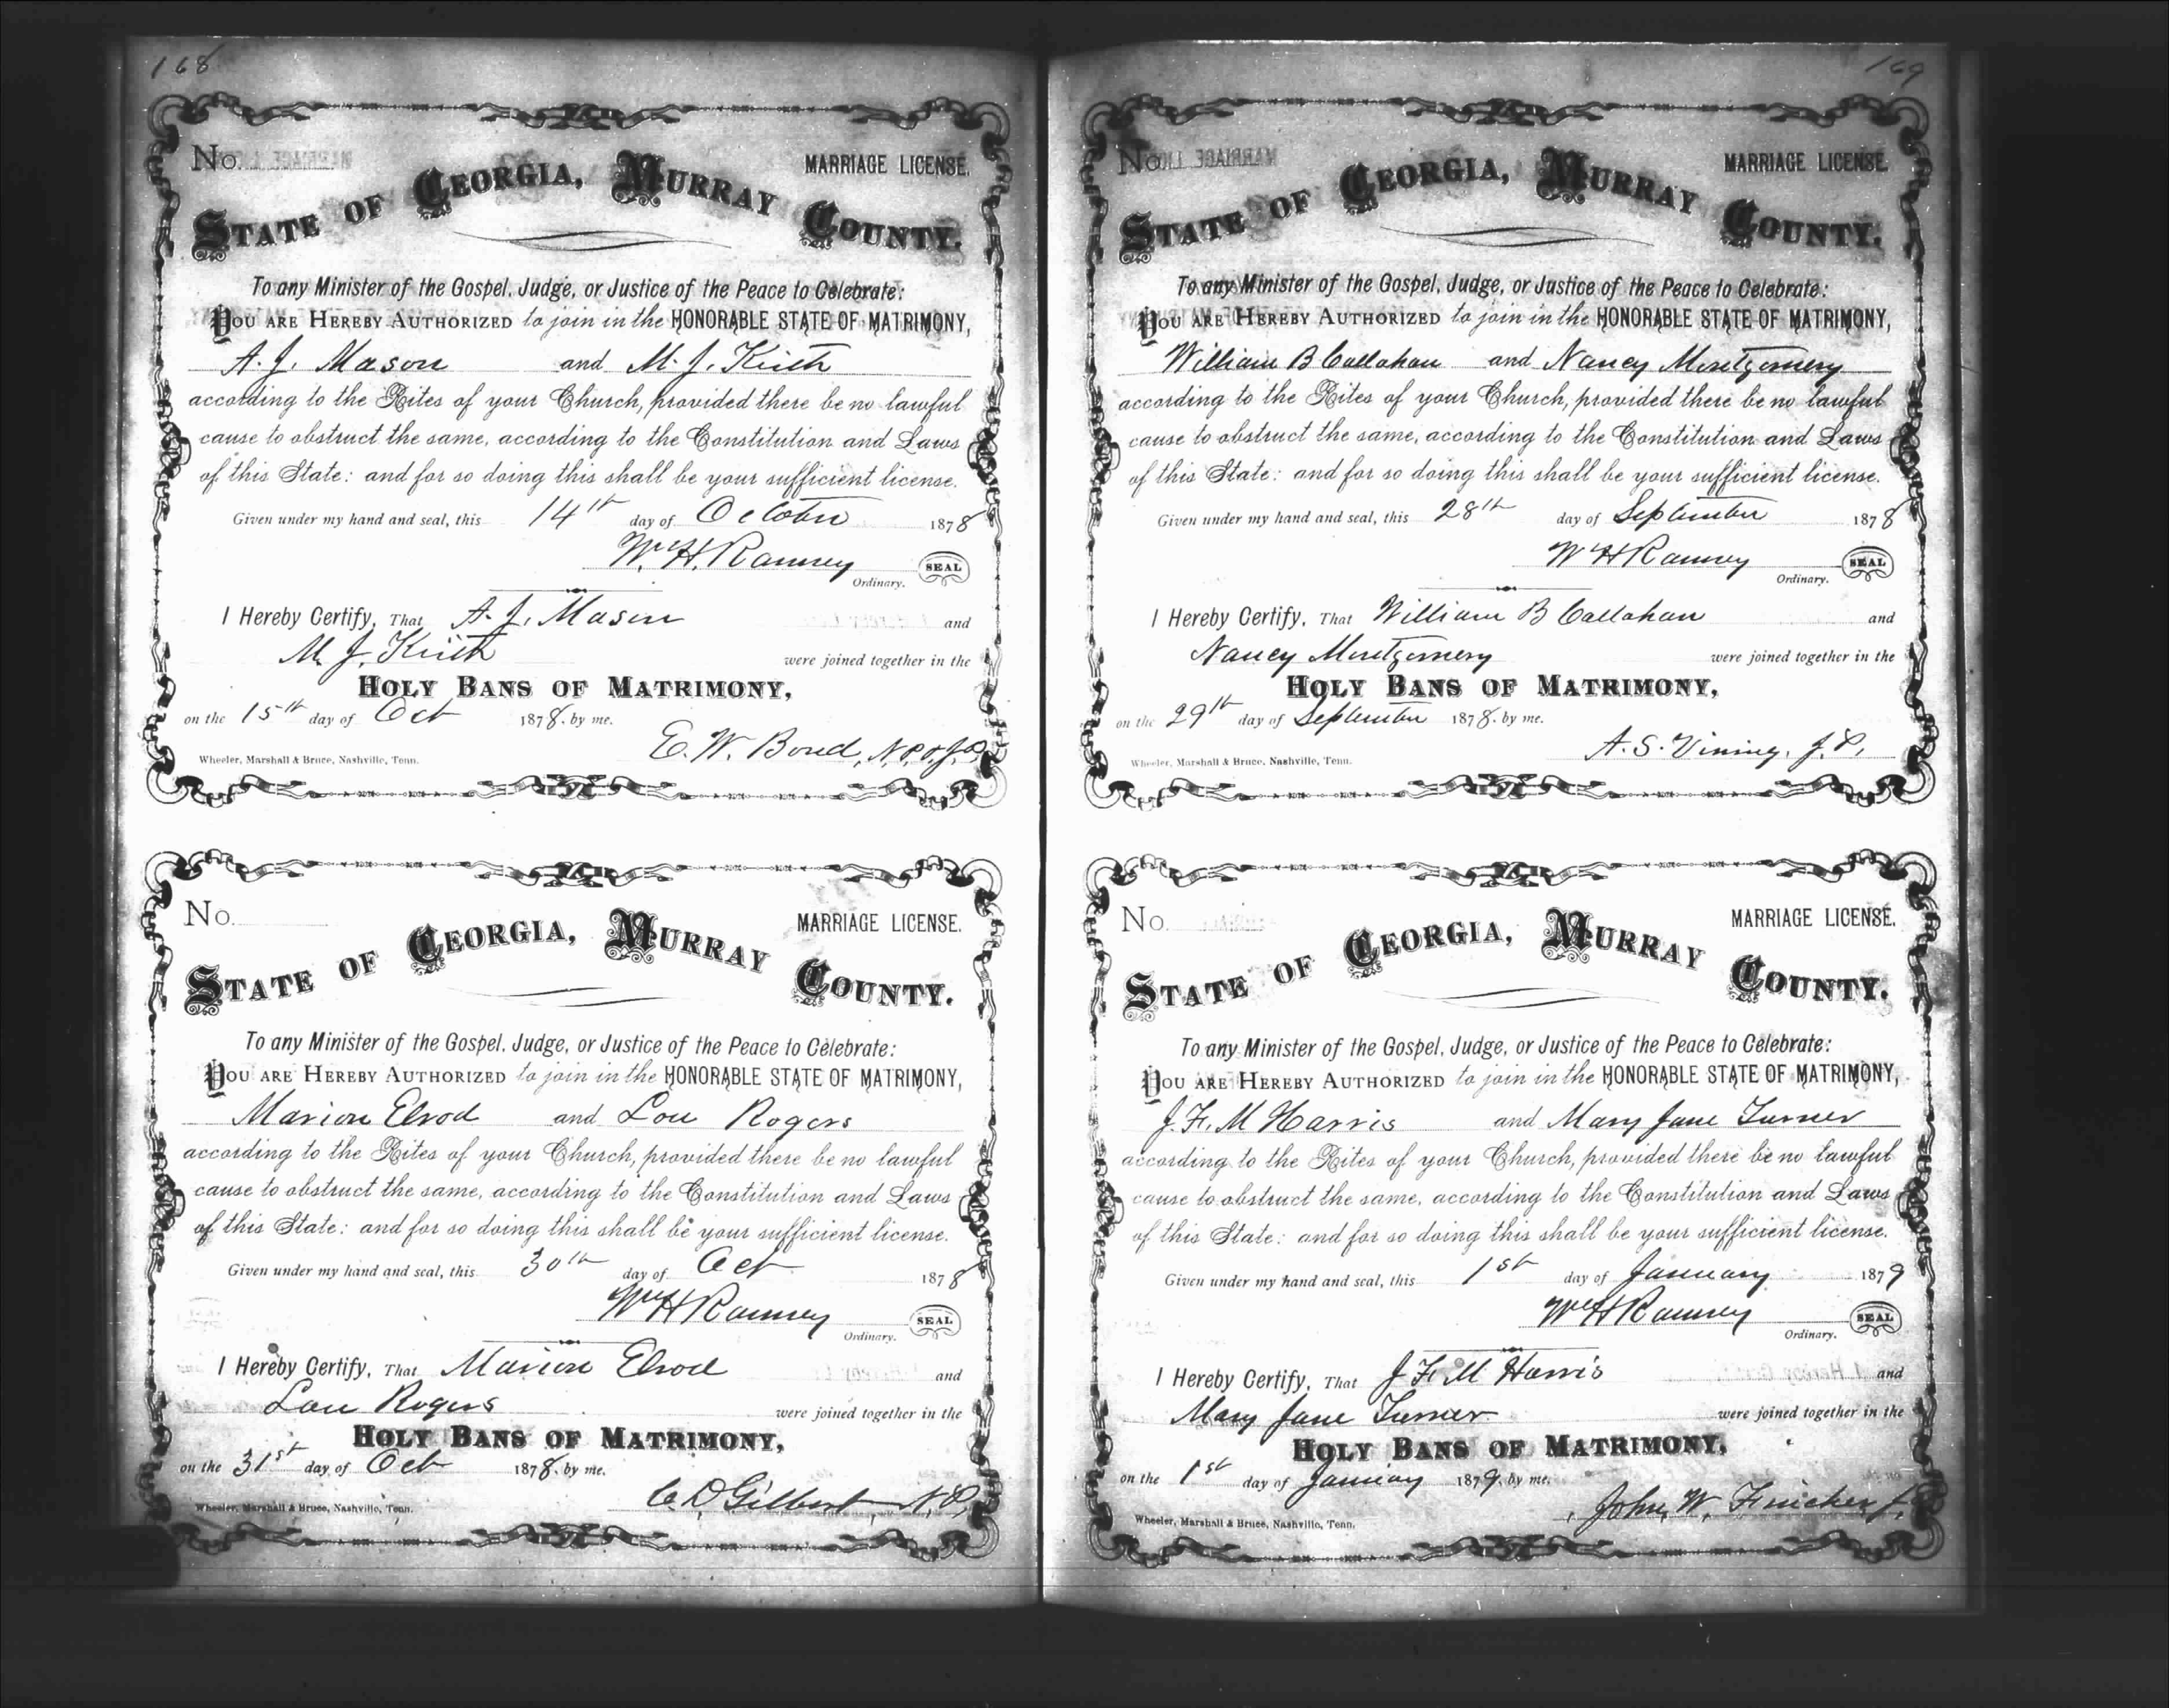 168
No. MARRIAGE LICENSE.
STATE OF GEORGIA, MURRAY COUNTY.
To any Minister of the Gospel, Judge, or Justice of the Peace to Celebrate:
YOU ARE HEREBY AUTHORIZED to join in the HONORABLE STATE OF MATRIMONY,
A. J. Mason and M. J. Keith
according to the Rites of your Church, provided there be no lawful
cause to obstruct the same, according to the Constitution and Laws
of this State: and for so doing this shall be your sufficient license.
Given under my hand and seal, this 14th day of October 1878
Wm H. Ramsey SEAL
Ordinary.
I Hereby Certify, That A. J. Mason and
M. J. Keith were joined together in the
HOLY BANS OF MATRIMONY,
on the 15th day of Oct 1878. by me.
E. W. Bond, N.P.&J.P.
Wheeler, Marshall & Bruce, Nashville, Tenn.
No. MARRIAGE LICENSE.
STATE OF GEORGIA, MURRAY COUNTY.
To any Minister of the Gospel, Judge, or Justice of the Peace to Celebrate:
YOU ARE HEREBY AUTHORIZED to join in the HONORABLE STATE OF MATRIMONY,
Marion Elrod and Lou Rogers
according to the Rites of your Church, provided there be no lawful
cause to obstruct the same, according to the Constitution and Laws
of this State: and for so doing this shall be your sufficient license.
Given under my hand and seal, this 30th day of Oct 1878
Wm H Ramsey SEAL
Ordinary.
I Hereby Certify, That Marion Elrod and
Lou Rogers were joined together in the
HOLY BANS OF MATRIMONY,
on the 31st day of Oct 1878. by me.
C. D Gilbert N.P.
Wheeler, Marshall & Bruce, Nashville, Tenn.
169
No. MARRIAGE LICENSE.
STATE OF GEORGIA, MURRAY COUNTY.
To any Minister of the Gospel, Judge, or Justice of the Peace to Celebrate:
YOU ARE HEREBY AUTHORIZED to join in the HONORABLE STATE OF MATRIMONY,
William B Callahan and Nancy Montgomery
according to the Rites of your Church, provided there be no lawful
cause to obstruct the same, according to the Constitution and Laws
of this State: and for so doing this shall be your sufficient license.
Given under my hand and seal, this 28th day of September 1878
Wm H Ramsey SEAL
Ordinary.
I Hereby Certify, That William B Callahan and
Nancy Montgomery were joined together in the
HOLY BANS OF MATRIMONY,
on the 29th day of September 1878. by me.
A. S. Vining, J.P.
Wheeler, Marshall & Bruce, Nashville, Tenn.
No. MARRIAGE LICENSE.
STATE OF GEORGIA, MURRAY COUNTY.
To any Minister of the Gospel, Judge, or Justice of the Peace to Celebrate:
YOU ARE HEREBY AUTHORIZED to join in the HONORABLE STATE OF MATRIMONY,
J. F. M Harris and Mary Jane Turner
according to the Rites of your Church, provided there be no lawful
cause to obstruct the same, according to the Constitution and Laws
of this State: and for so doing this shall be your sufficient license.
Given under my hand and seal, this 1st day of January 1879
Wm H Ramsey SEAL
Ordinary.
I Hereby Certify, That J F. M Harris and
Mary Jane Turner were joined together in the
HOLY BANS OF MATRIMONY,
on the 1st day of January 1879, by me.
John W. Fincher J.
Wheeler, Marshall & Bruce, Nashville, Tenn.